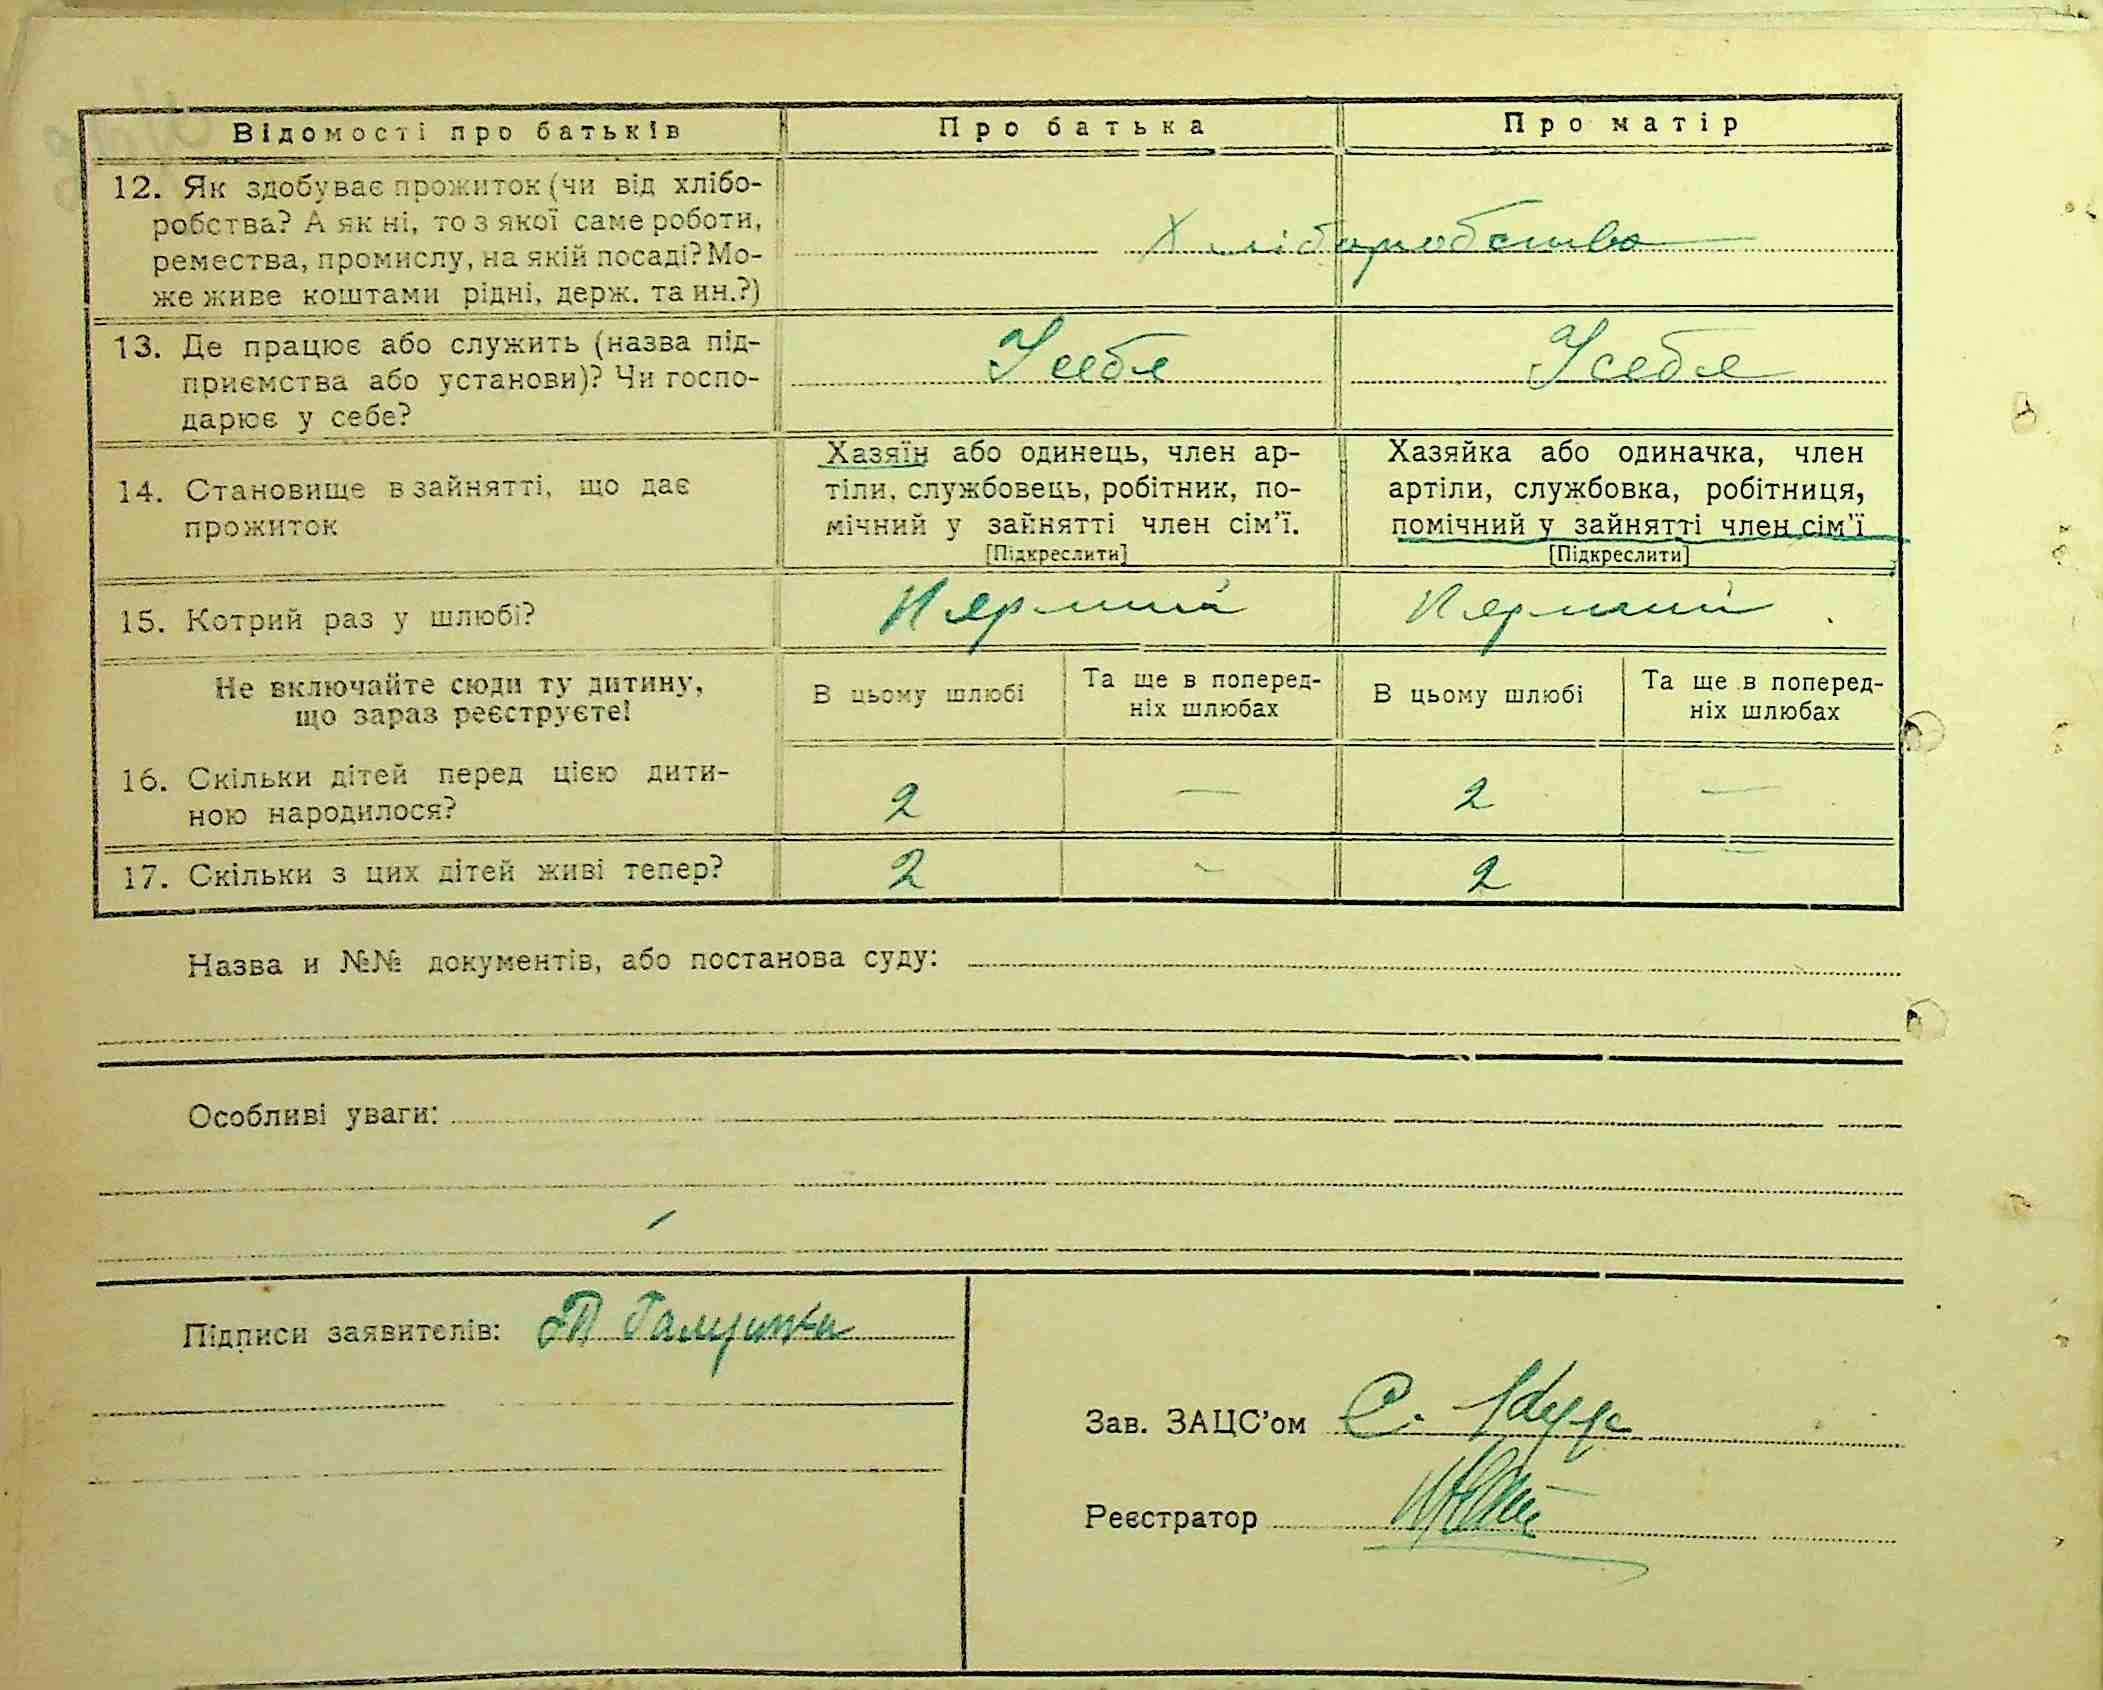 Відомості про батьків
Про батька
Про матір
12. Як здобуває прожиток (чи від хлібо-
робства? А як ні, то з якої саме роботи,
ремества, промислу, на якій посаді? Мо-
же живе коштами рідні, держ. та ин.?)
Хліборобство
13. Де працює або служить (назва під-
приємства або установи)? Чи госпо-
дарює у себе?
У себя
У себя
14. Становище в зайнятті, що дає
прожиток
Хазяїн або одинець, член ар-
тіли, службовець, робітник, по-
мічний у зайнятті член сім'ї.
[Підкреслити]
Хазяйка або одиначка, член
артіли, службовка, робітниця,
помічний у зайнятті член сім'ї
[Підкреслити]
15. Котрий раз у шлюбі?
Перший
Перший
Не включайте сюди ту дитину,
що зараз реєструєте!
В цьому шлюбі
Та ще в поперед-
ніх шлюбах
В цьому шлюбі
Та ще в поперед-
ніх шлюбах
16. Скільки дітей перед цією дити-
ною народилося?
2 — 2 —
17. Скільки з цих дітей живі тепер?
2 - 2 —
Назва и №№ документів, або постанова суду:
Особливі уваги:
Підписи заявителів:
Зав. ЗАЦС'ом С.
Реєстратор